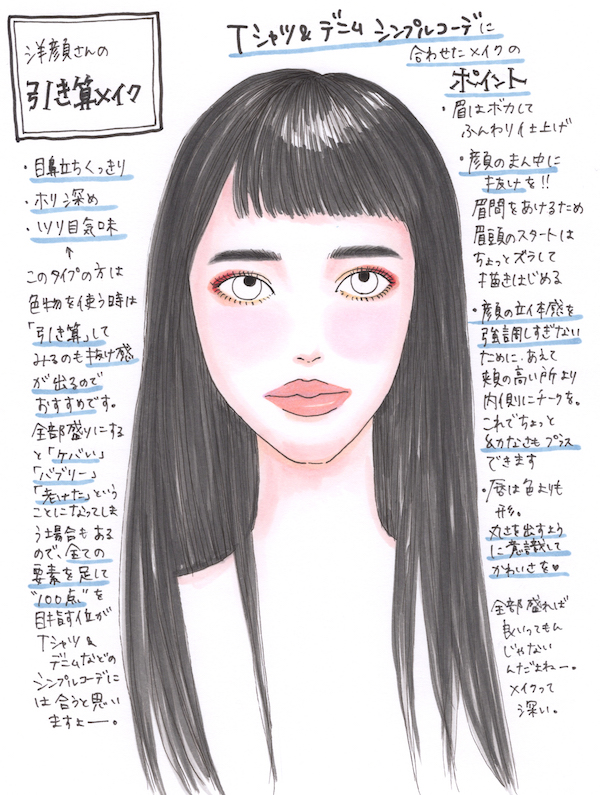 洋顔さんの
引き算メイク
Tシャツ&デニム シンプルコーデに
合わせたメイクの
ポイント
・目鼻立ちくっきり
・ホリ深め
・ツリ目気味
↑
このタイプの方は
色物を使う時は
「引き算」して
みるのも抜け感
が出るので
おすすめです。
全部盛りにする
と「ケバい」
「バブリー」
「老けた」という
ことになってしま
う場合もある
ので、全ての
要素を足して
"100点"を
目指す位が
Tシャツ&
デニムなどの
シンプルコーデに
は合うと思い
ますよー。
・眉はボカして
ふんわり仕上げ
・顔のまん中に
抜けを!!
眉間をあけるため
眉頭のスタートは
ちょっとズラして
描きはじめる
・顔の立体感を
強調しすぎない
ために、あえて
頬の高い所より
内側にチークを。
これでちょっと
おかなさもプラス
できます
・唇は色よりも
形。
丸さを出すよう
に意識して
かわいさを♥
全部盛れば
良いってもん
じゃない
んだよねー。
メイクって
深い。